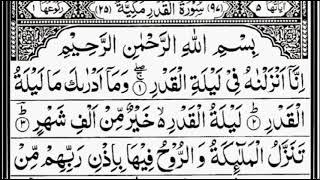 اٰيَاتُهَا ٥ (٩٧) سُوْرَةُ الْقَدْرِ مَكِّيَّةٌ (٢٥) رُكُوْعُهَا ١
بِسْمِ اللّٰهِ الرَّحْمٰنِ الرَّحِيْمِ
اِنَّاۤ اَنْزَلْنٰهُ فِيْ لَيْلَةِ الْقَدْرِ ۚۖ ﴿١﴾ وَمَاۤ اَدْرٰىكَ مَا لَيْلَةُ
الْقَدْرِ ؕ ﴿٢﴾ لَيْلَةُ الْقَدْرِ ۙ۬ خَيْرٌ مِّنْ اَلْفِ شَهْرٍ ؕؔ ﴿٣﴾
تَنَزَّلُ الْمَلٰٓئِكَةُ وَ الرُّوْحُ فِيْهَا بِاِذْنِ رَبِّهِمْ ۚ مِنْ